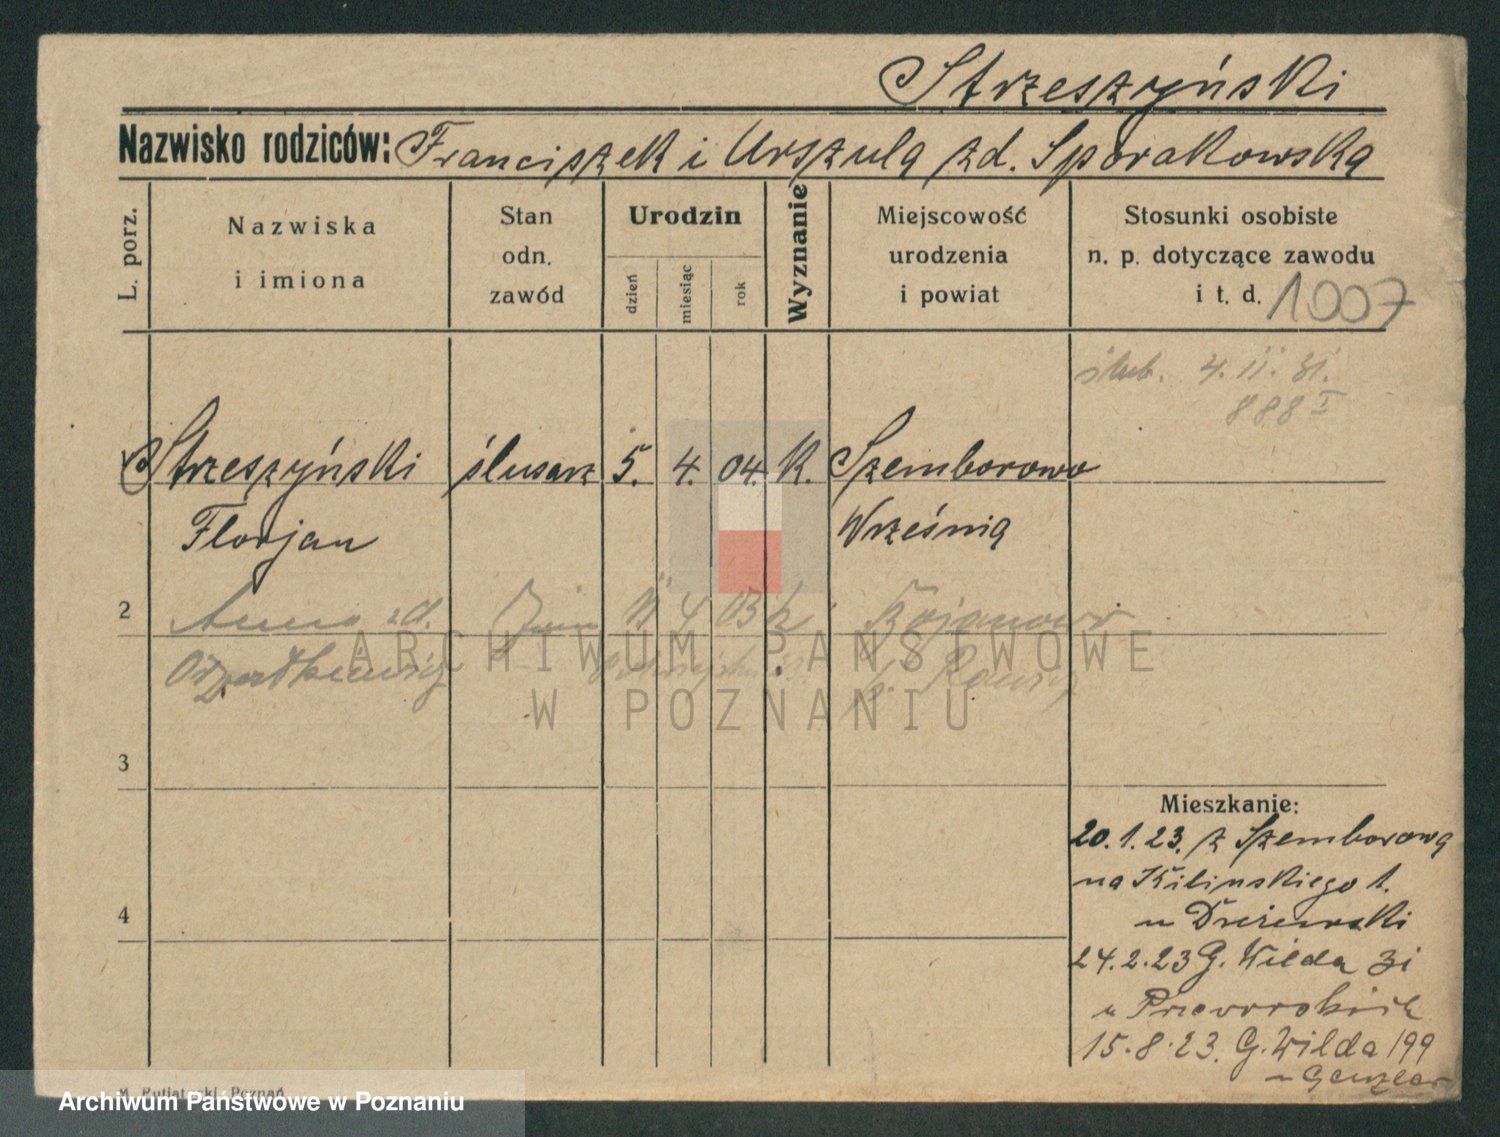 Strzeszyński
Nazwisko rodziców: Franciszek i Urszula zd. Sporakowska
L. porz.
Nazwiska
i imiona
Stan
odn.
zawód
Urodzin
dzień
miesiąc
rok
Wyznanie
Miejscowość
urodzenia
i powiat
Stosunki osobiste
n. p. dotyczące zawodu
i t. d. 1007
ślub. 4. II. 31.
888 I
Strzeszyński ślusarz 5. 4. 04. K. Szemborowo
Florjan Września
2 Anna zd. 4 03 k Bojanowo
p. Rawicz
ARCHIWUM PAŃSTWOWE
W POZNANIU
3
4
Mieszkanie:
20.1.23. z Szemborowa
na Kilińskiego 1.
u Drzewski
24.2.23 G. Wilda 31
u
15.8.23. G. Wilda 199
u
Poznań
Archiwum Państwowe w Poznaniu